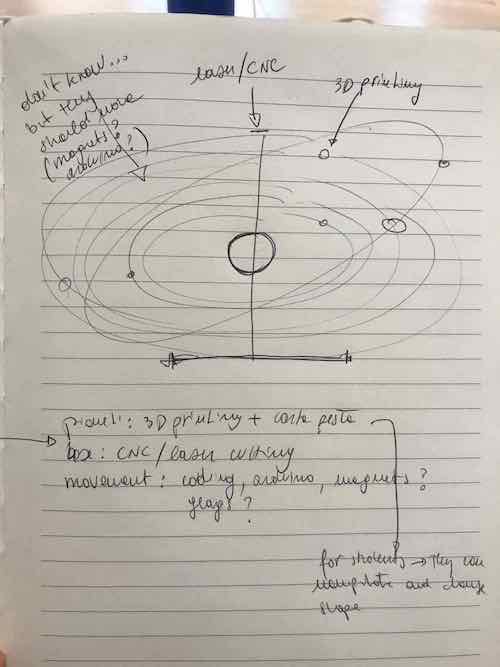 don't know...
but they
should move
(magnets?
arduino?)
laser/CNC
3D printing
pianeti: 3D printing + carta pesta
base: CNC/laser cutting
movement: coding, arduino, magnets?
gears?
for students → they can
manipulate and change
shape